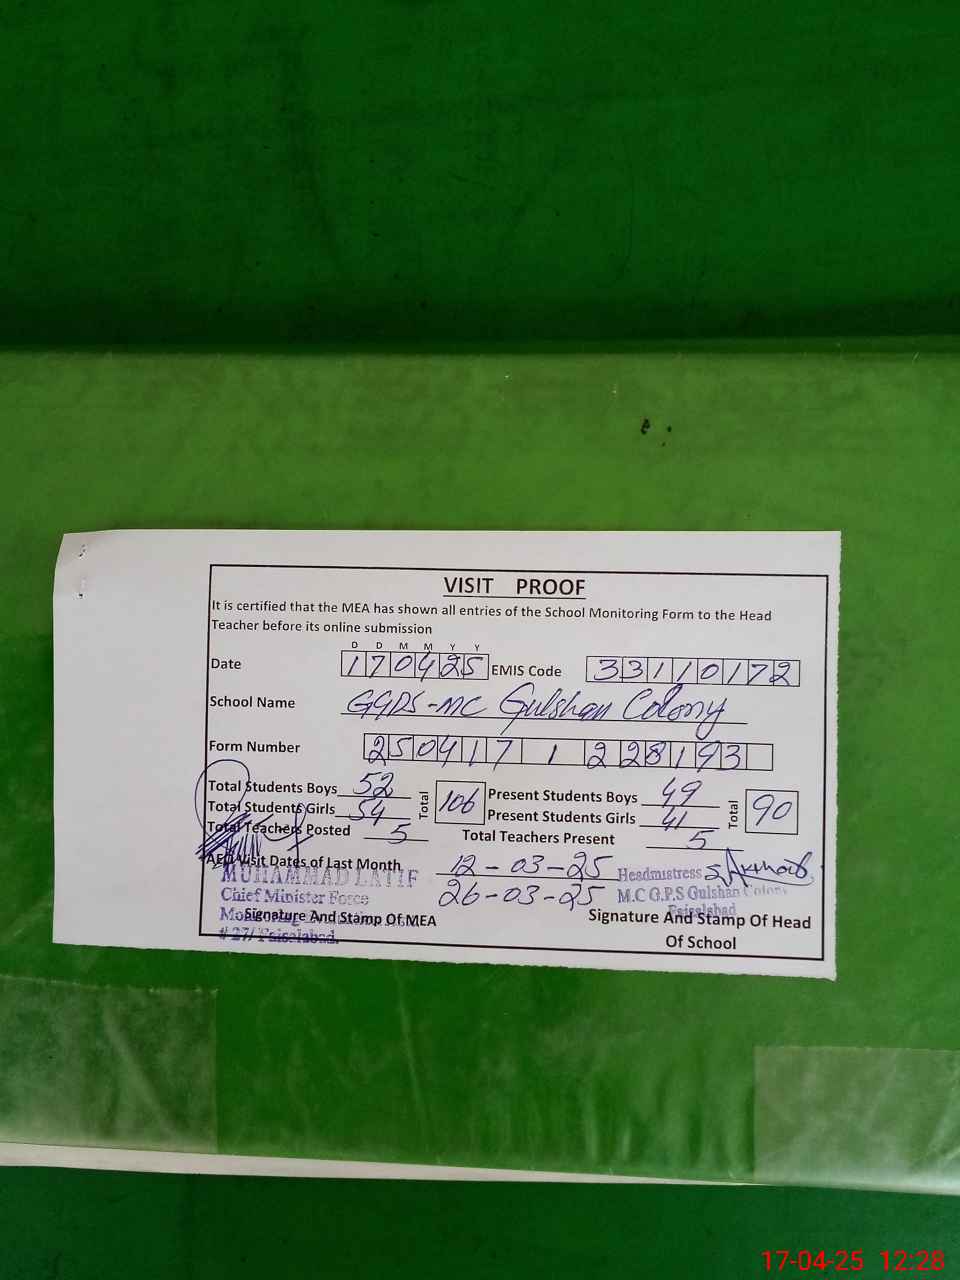 VISIT PROOF
It is certified that the MEA has shown all entries of the School Monitoring Form to the Head
Teacher before its online submission
D D M M Y Y
Date 170425 EMIS Code 33110172
School Name GGPS-MC Gulshan Colony
Form Number 250417 1 228193
Total Students Boys 52 Total 106 Present Students Boys 49 Total 90
Total Students Girls 54 Present Students Girls 41
Total Teachers Posted 5 Total Teachers Present 5
AEO Visit Dates of Last Month 12-03-25
26-03-25
MUHAMMAD LATIF
Chief Minister Force
# 27/ Faisalabad.
Signature And Stamp Of MEA
Headmistress
M.C G.P.S Gulshan Colony
Faisalabad
Signature And Stamp Of Head
Of School
17-04-25 12:28